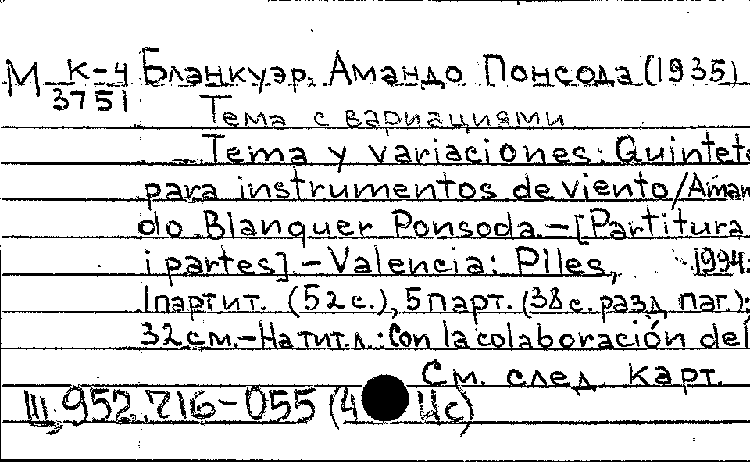 М К-4 Бланкуэр, Амандо Понсода (1935)
3751 Тема с вариациями
Tema y variaciones: Quinteto
para instrumentos de viento/Aman
do Blanquer Ponsoda.-[Partitura
i partes].-Valencia: Piles, 1994.
1 партит. (52 с.), 5 парт. (38 с. разд. паг.);
32 см.-На тит.л.: Con la colaboración del
См. след. карт.
III 952.716-055 (4 Ис)